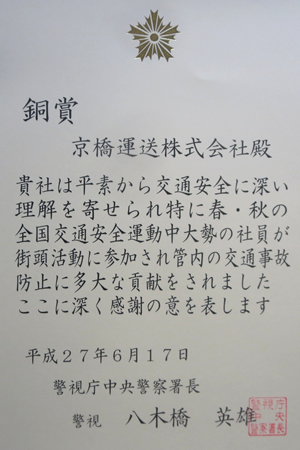 銅賞
京橋運送株式会社殿
貴社は平素から交通安全に深い
理解を寄せられ特に春・秋の
全国交通安全運動中大勢の社員が
街頭活動に参加され管内の交通事故
防止に多大な貢献をされました
ここに深く感謝の意を表します
平成27年6月17日
警視庁中央警察署長
警視 八木橋 英雄
警視庁
中央
警察署長